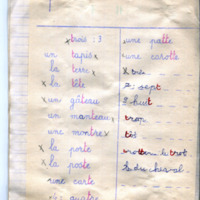 x trois : 3
un tapis x
la terre x
x la tête
x un gâteau
un manteau x
une montre x
x la porte
x la poste
une carte
quatre
x une patte
x une carotte
x très
7 : sept
8 huit
x trop
x tôt
x trottoir le trot
x du cheval